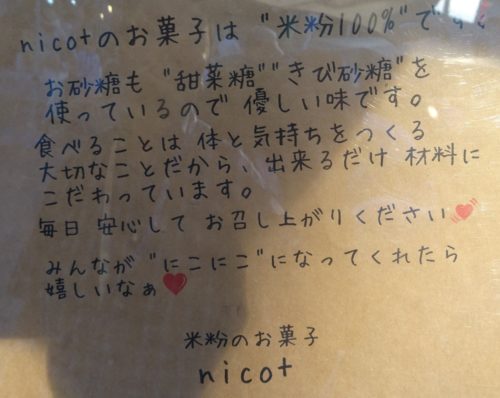 nicotのお菓子は "米粉100%"です。
お砂糖も "甜菜糖""きび砂糖"を
使っているので 優しい味です。
食べることは 体と気持ちをつくる
大切なことだから、出来るだけ 材料に
こだわっています。
毎日 安心して お召し上がりください
みんなが "にこにこ"になってくれたら
嬉しいなぁ
米粉のお菓子
nicot